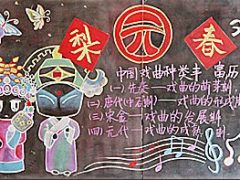 梨 元 春
中国戏曲种类丰富历
(一)先秦——戏曲的萌芽期
(二)唐代中后期——戏曲的形成期
(三)宋金——戏曲的发展期
(四)元代——戏曲的成熟期